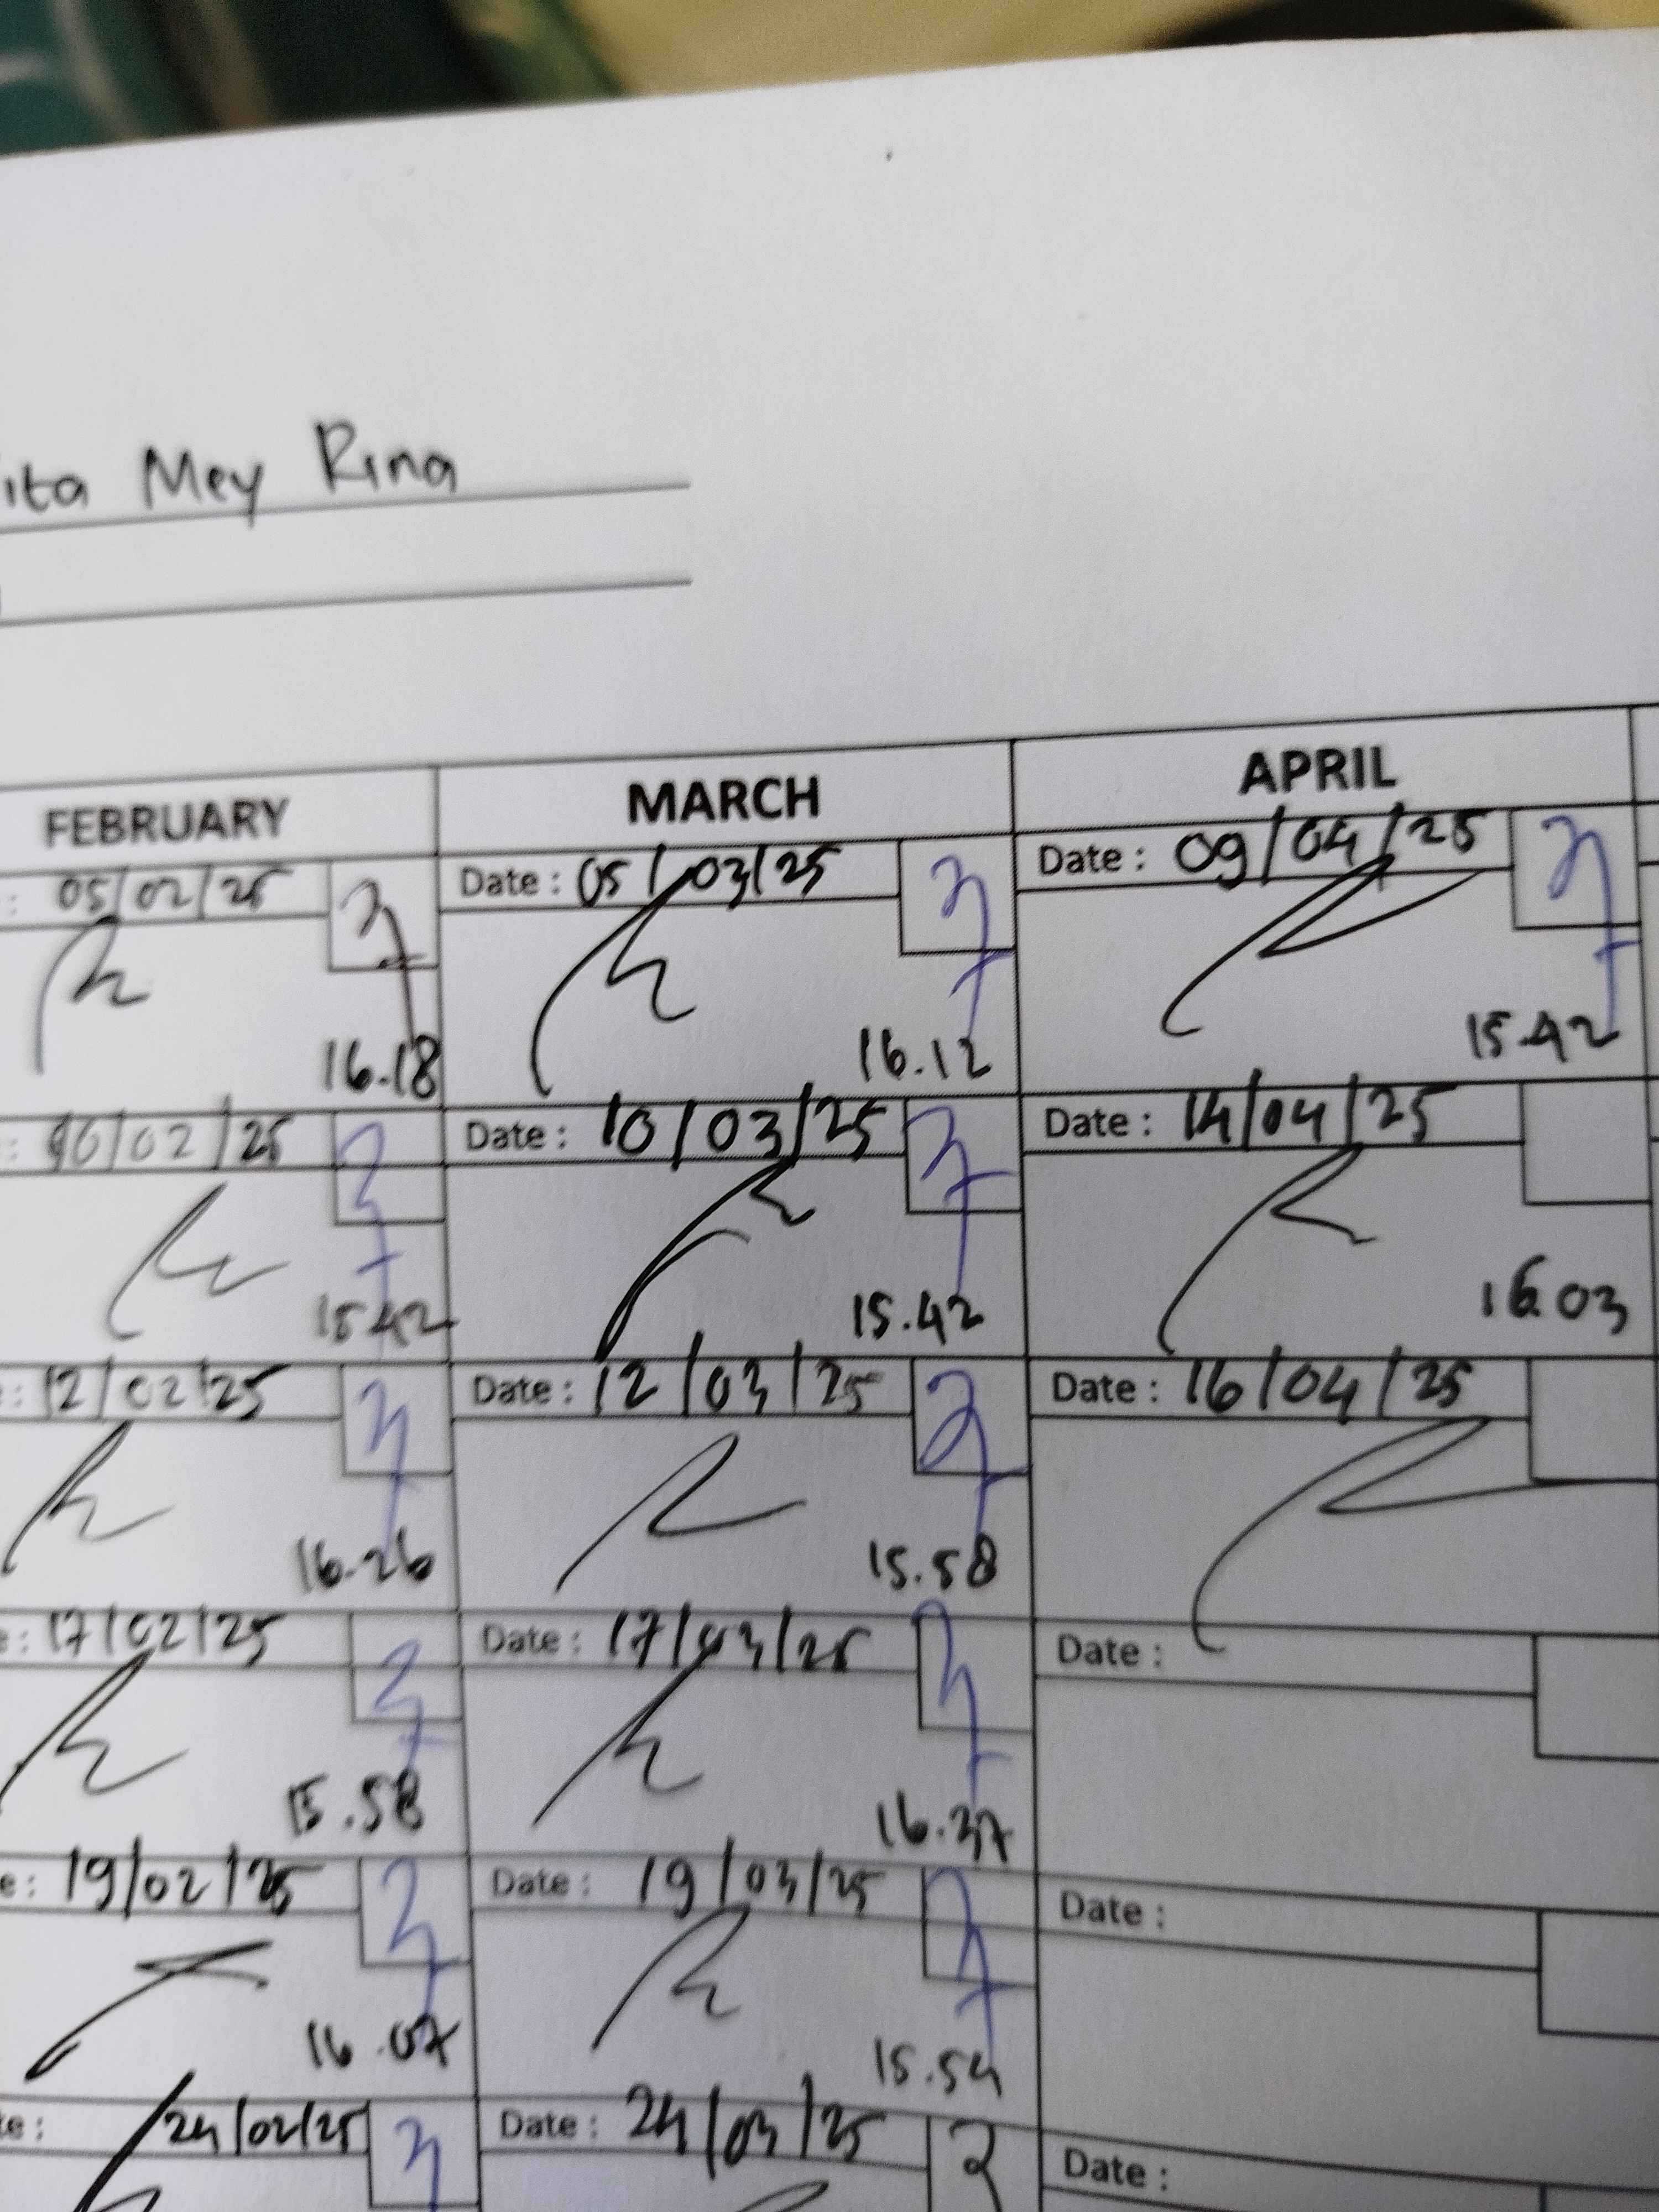 ita Mey Rina
FEBRUARY MARCH APRIL
: 05/02/25 Date : 05/03/25 Date : 09/04/25
16.18 16.12 15.42
: 10/02/25 Date : 10/03/25 Date : 14/04/25
15.42 15.42 16.03
: 12/02/25 Date : 12/03/25 Date : 16/04/25
16.26 15.58
e : 17/02/25 Date : 17/03/25 Date :
15.58 16.37
e : 19/02/25 Date : 19/03/25 Date :
16.07 15.54
te : 24/02/25 Date : 24/03/25 Date :